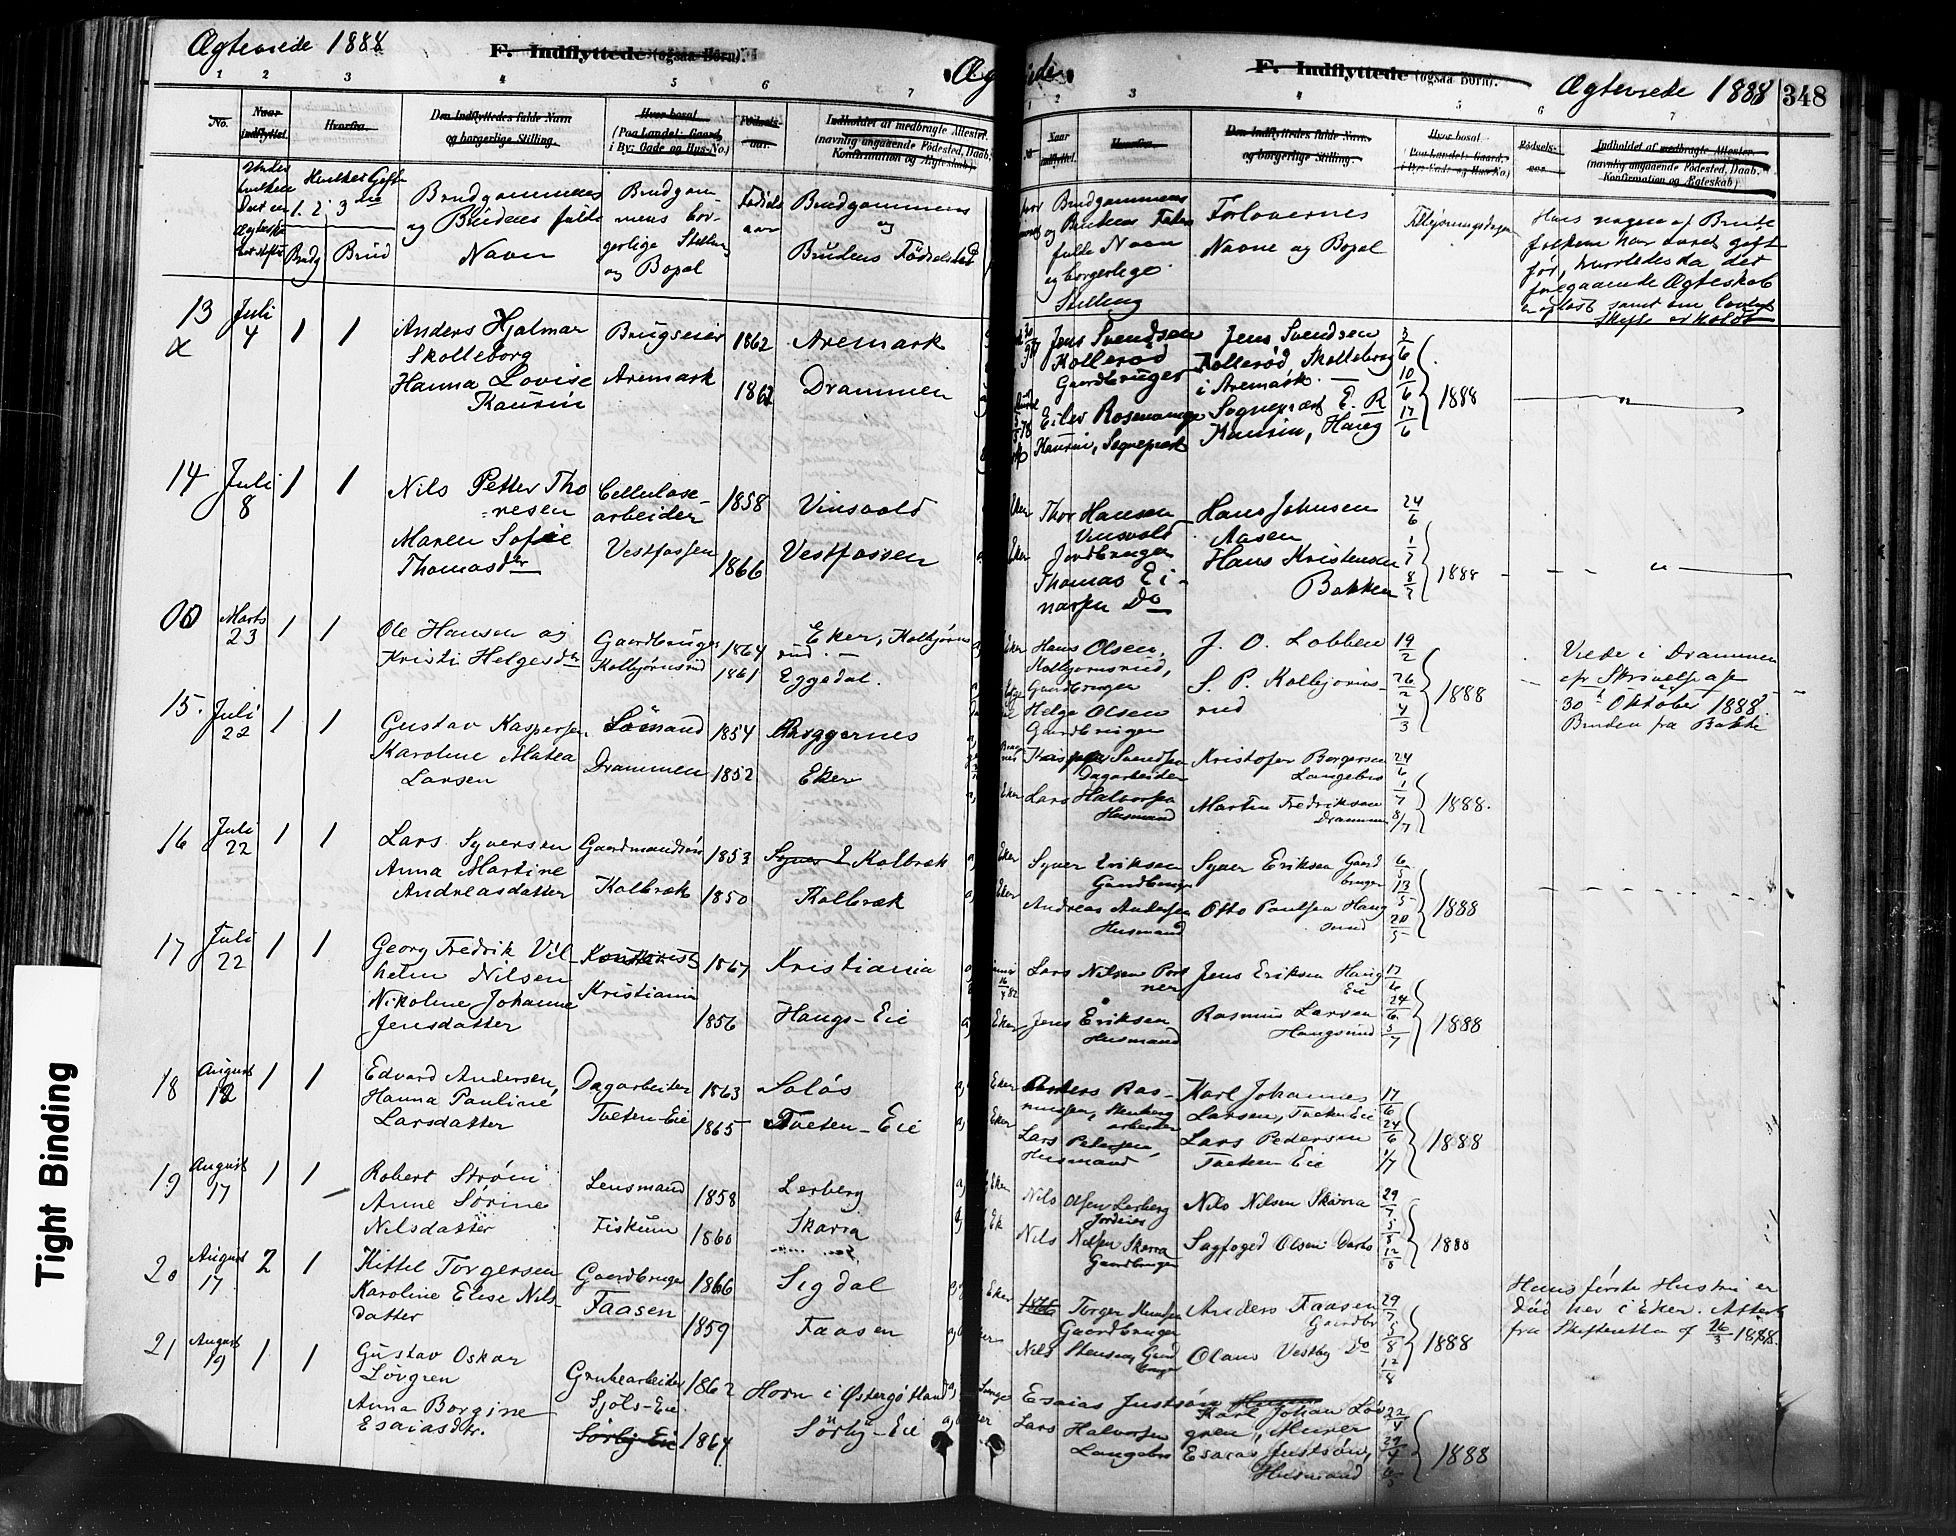 Ægteviede 1888
F. Indflyttede (ogsaa Børn).
1 2 3 4 5 6 7
No.
Naar indflyttet.
Hvorfra.
Den Indflyttedes fulde Navn
og borgerlige Stilling.
Hvor bosat
(Paa Landet: Gaard,
i By: Gade og Hus-No.)
Fødsels-
aar.
Indholdet af medbragte Attester.
(navnlig angaaende Fødested, Daab,
Konfirmation og Ægteskab)
Brudgommens
og Brudens fulde
Navn
Brudgom-
mens bor-
gerlige Stilling
og Bopæl
Fødsels
aar
Brudgommens
og
Brudens Fødselsted
1. 2. 3
Brudg Brud
13
Juli
4
1 1
Anders Hjalmar
Skolleborg
Hanna Lovise
Kaurin
Brugseier
Aremark
1862
1862
Aremark
Drammen
14
Juli
8
1 1
Nils Petter Tho
=resen
Maren Sofie
Thomasdtr
Cellulose-
arbeider
Vestfossen
1858
1866
Vinsvold
Vestfossen
Marts
23
1 1
Ole Hansen og
Kristi Helgesdtr
Gaardbruger
Kolbjørnsrud
1864
1861
Eker, Kolbjørns
rud. —
Eggedal.
15.
Juli
22
1 1
Gustav Kaspersen
Karoline Matea
Larsen
Sømand
Drammen
1854
1852
Bragernes
Eker
16
Juli
22
1 1
Lars Syversen
Anna Martine
Andreasdatter
Gaardmandssøn
Kolbræk
1853
1850
Kolbræk
Kolbræk
17
Juli
22
1 1
Georg Fredrik Vil-
helm Nilsen
Nikoline Johanne
Jensdatter
Kristiania
1867
1856
Kristiania
Haugs-Eie
18
August
12
1 1
Edvard Andersen,
Hanna Pauline
Larsdatter
Dagarbeider
Tveten-Eie
1863
1865
Soløs
Tveten-Eie
19
August
17
1 1
Robert Strøm
Anne Sørine
Nilsdatter
Lensmand
Fiskum
1858
1860
Lerberg
Skarra
20
August
17
2 1
Kittel Torgersen
Karoline Elise Nils-
datter
Gaardbruger
Faasen
1866
1859
Sigdal
Faasen
21
August
19
1 1
Gustav Oskar
Løvgren
Anna Borgine
Esaiasdtr.
Grubearbeider
Sjöls-Eie
Sørby Eie
1862
1864
Horn i Østergøtland
Sörby-Eie
Ægteviede 1888 348
F. Indflyttede (ogsaa Børn).
1 2 3 4 5 6 7
Naar
indflyttet.
Hvorfra.
Den Indflyttedes fulde Navn
og borgerlige Stilling.
Hvor bosat
(Paa Landet: Gaard,
i By: Gade og Hus-No.)
Fødsels-
aar.
Indholdet af medbragte Attester.
(navnlig angaaende Fødested, Daab,
Konfirmation og Ægteskab)
Brudgommens
og Brudens Faders
fulde Navn
og borgerlige
Stilling
Forlovernes
Navne og Bopæl
Tillysningsdagen
Hvis nogen af Brude
folkene har været gift
før, hvorledes da det
foregaaende Ægteskab
er opløst samt om lovligt
Skifte er holdt
Jens Svendsen
Kollerød
Gaardbruger
Eilev Rosenvinge
Kaurin, Sogneprest
Jens Svendsen
Kollerød, Skolleborg
i Aremark. —
Sogneprest E. R
Kaurin, Haug
3/6
10/6
17/6
1888
Eker
Eker
Thor Hansen
Vinsvold
Jordbruger
Thomas Ei-
narsen Do
Hans Johnsen
Aasen
Hans Kristensen
Bakken
24/6
1/7
8/7
1888
Eker
Hans Olsen,
Kolbjørnsrud,
Gaardbruger
Helge Olsen
Gaardbruger
J. O. Lobben
S. P. Kolbjørns-
rud
19/2
26/2
4/3
1888
Viede i Drammen
efr Skrivelse af
30 Oktober 1888
Bruden fra Bakke
Eker
Kasper Svendsen
Dagarbeider
Lars Halvorsen
Husmand
Kristofer Borgersen
Langebro
Martin Fredriksen
Drammen
24/6
1/7
8/7
1888.
Eker
Eker
Syver Eriksen
Gaardbruger
Andreas Andersen
Husmand
Syver Eriksen Gaard
bruger
Otto Paulsen Haug
sund
6/5
13/5
20/5
1888
Eker
Lars Nilsen Port
ner
Jens Eriksen
Husmand
Jens Eriksen Haug
Eie
Rasmus Larsen
Haugsund
17/6
24/6
3/7
1888
Eker
Eker
Anders Ras-
mussen, Stenberg
arbeider
Lars Petersen,
Husmand
Karl Johannes
Larsen, Tveten Eie
Lars Pedersen
Tveten Eie
17/6
24/6
1/7
1888
Eker
Nils Olsen Lerberg
Jordeier
Nils Nilsen Skarra
Gaardbruger
Nils Nilsen Skarra
Sagfoged Olsen Darbo
29/7
5/8
12/8
1888
Eker
1866 Torger Knudsen
Gaardbruger
Nils Stensen, Gaard
bruger
Anders Faasen
Gaardbr
Olaus Vestby Do
29/7
5/8
12/8
1888
Hans første Hustru er
død her i Eker. Attest
fra Skifteretten af 26/3 1888.
Esaias Justsøn
Lars Halvorsen
Langebro
Karl Johan Løv
gren, Murer
Esaias Justsøn,
Husmand
22/4
29/4
6/5
1888
Tight Binding